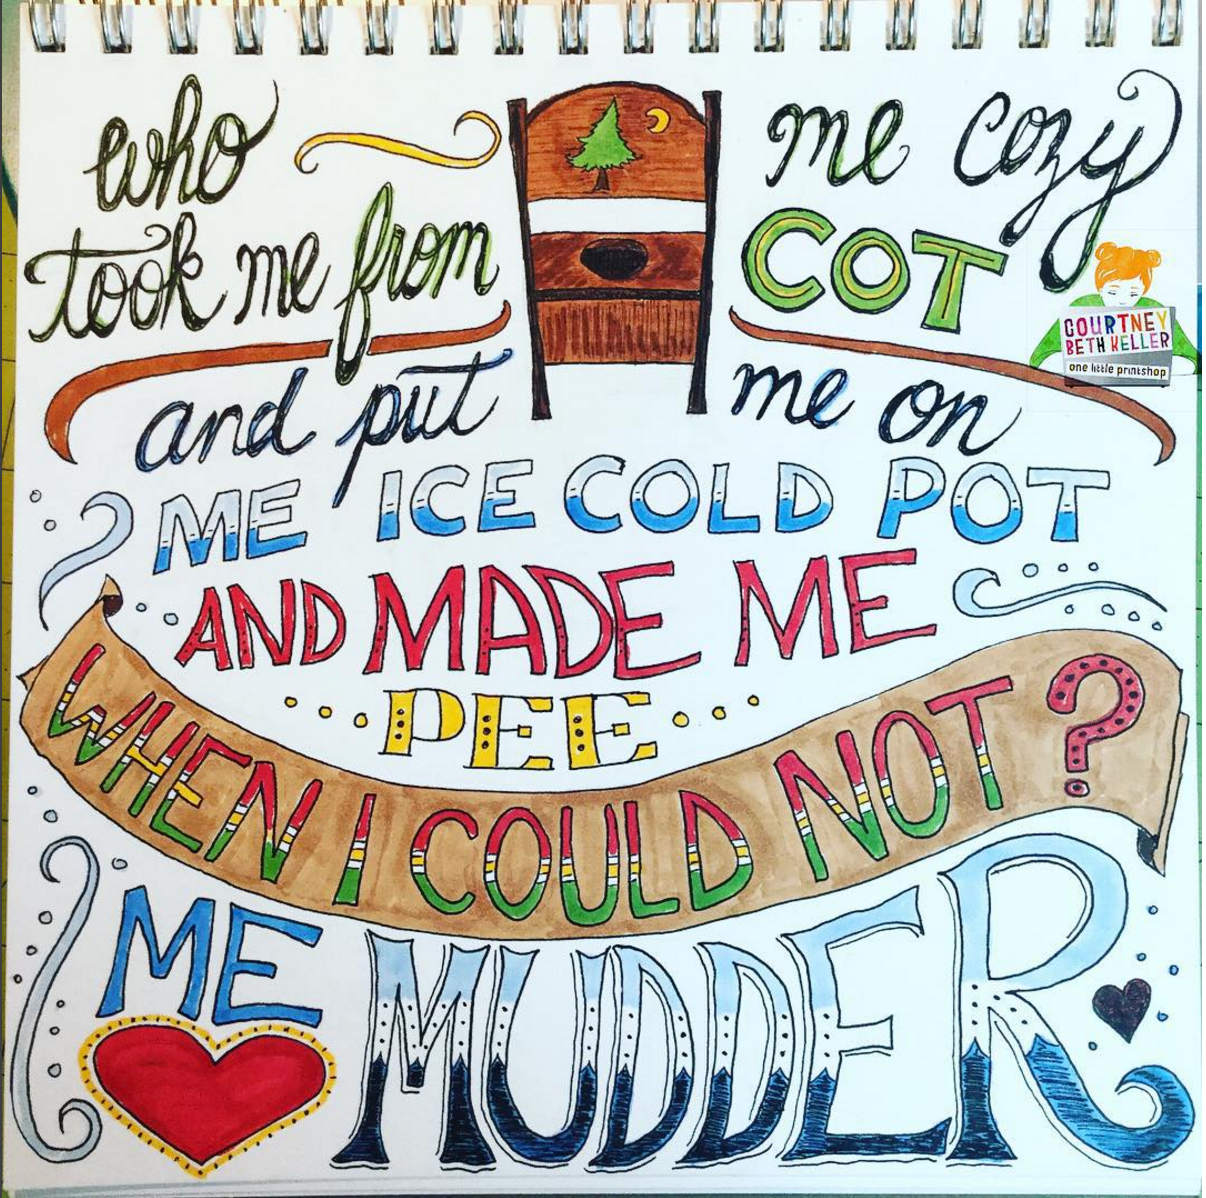 who me cozy
took me from COT
and put me on
ME ICE COLD POT
AND MADE ME
PEE
WHEN I COULD NOT?
ME MUDDER
COURTNEY
BETH KELLER
one little printshop